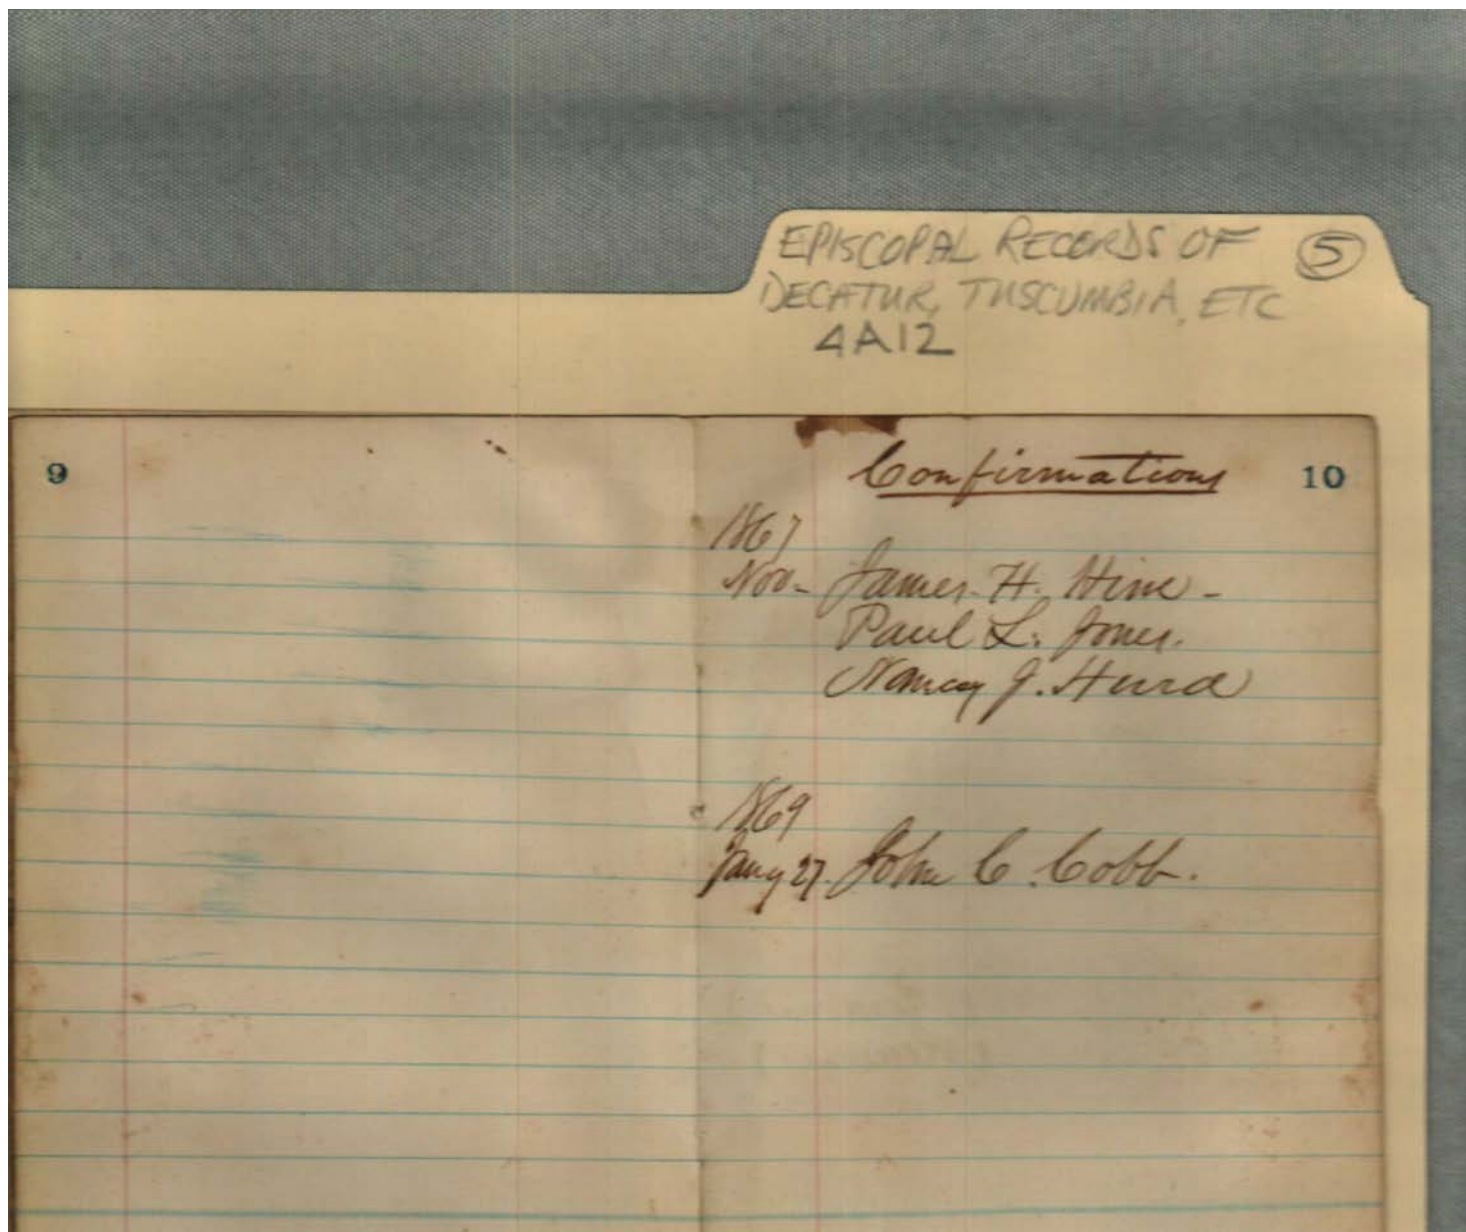 EPISCOPAL RECORDS OF 5
DECATUR, TUSCUMBIA, ETC
4A12
9
Confirmations 10
1867
Nov- James. H. Hine -
Paul L. Jones.
Nancy J. Hurd
1869
Jany 27. John C. Cobb.